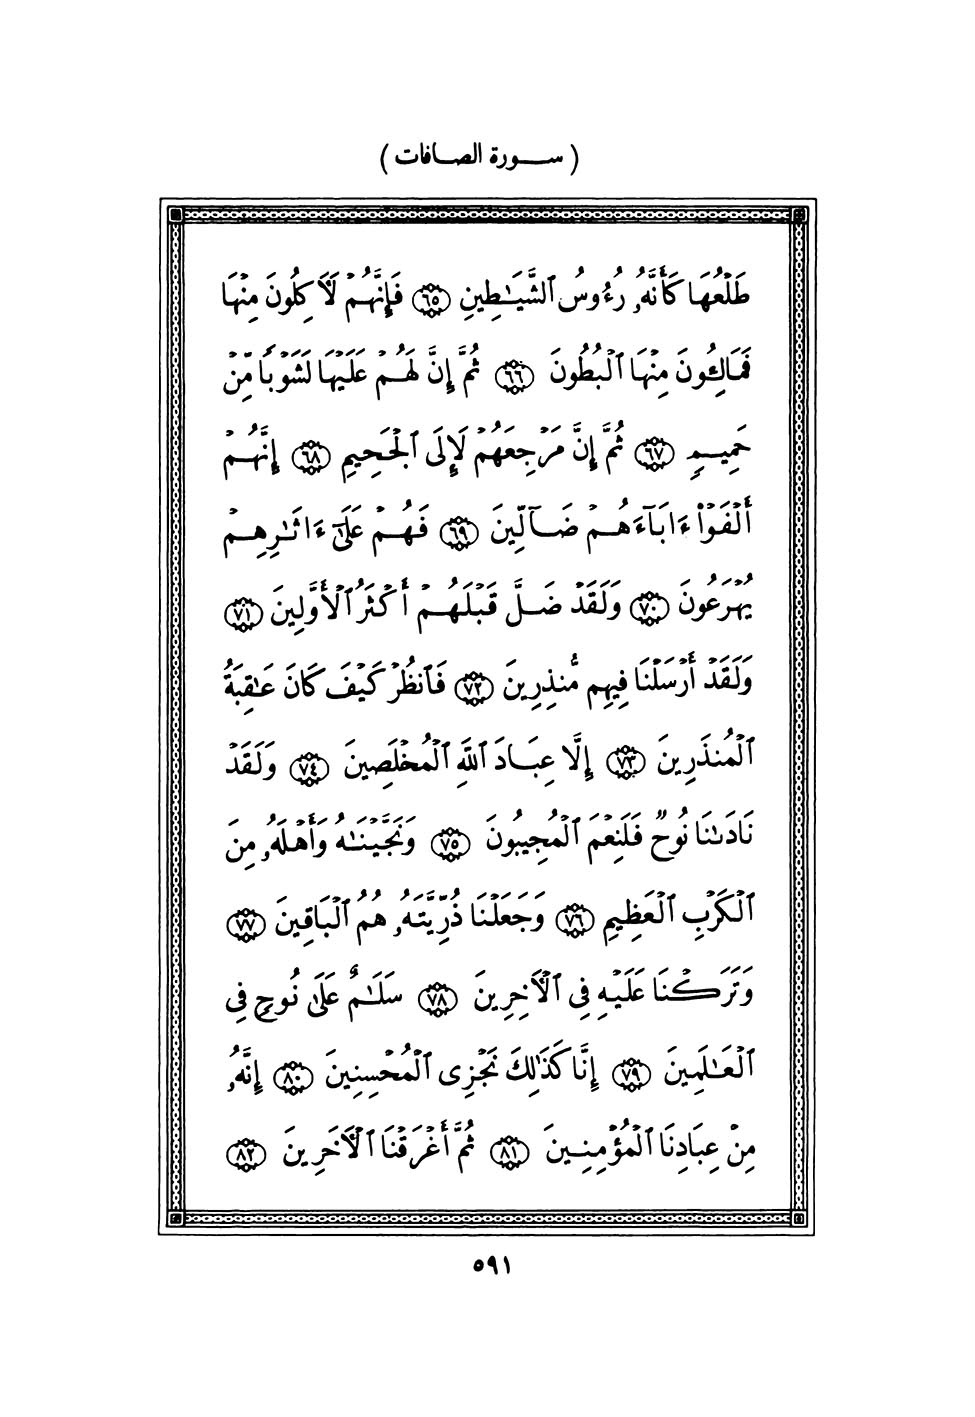 ( سورة الصافات )
طَلْعُهَا كَأَنَّهُۥ رُءُوسُ ٱلشَّيَـٰطِينِ ٦٥ فَإِنَّهُمْ لَـَٔاكِلُونَ مِنْهَا
فَمَالِـُٔونَ مِنْهَا ٱلْبُطُونَ ٦٦ ثُمَّ إِنَّ لَهُمْ عَلَيْهَا لَشَوْبًا مِّنْ
حَمِيمٍ ٦٧ ثُمَّ إِنَّ مَرْجِعَهُمْ لَإِلَى ٱلْجَحِيمِ ٦٨ إِنَّهُمْ
أَلْفَوْا۟ ءَابَآءَهُمْ ضَآلِّينَ ٦٩ فَهُمْ عَلَىٰٓ ءَاثَـٰرِهِمْ
يُهْرَعُونَ ٧٠ وَلَقَدْ ضَلَّ قَبْلَهُمْ أَكْثَرُ ٱلْأَوَّلِينَ ٧١
وَلَقَدْ أَرْسَلْنَا فِيهِم مُّنذِرِينَ ٧٢ فَٱنظُرْ كَيْفَ كَانَ عَـٰقِبَةُ
ٱلْمُنذَرِينَ ٧٣ إِلَّا عِبَادَ ٱللَّهِ ٱلْمُخْلَصِينَ ٧٤ وَلَقَدْ
نَادَىٰنَا نُوحٌ فَلَنِعْمَ ٱلْمُجِيبُونَ ٧٥ وَنَجَّيْنَـٰهُ وَأَهْلَهُۥ مِنَ
ٱلْكَرْبِ ٱلْعَظِيمِ ٧٦ وَجَعَلْنَا ذُرِّيَّتَهُۥ هُمُ ٱلْبَاقِينَ ٧٧
وَتَرَكْنَا عَلَيْهِ فِى ٱلْـَٔاخِرِينَ ٧٨ سَلَـٰمٌ عَلَىٰ نُوحٍ فِى
ٱلْعَـٰلَمِينَ ٧٩ إِنَّا كَذَٰلِكَ نَجْزِى ٱلْمُحْسِنِينَ ٨٠ إِنَّهُۥ
مِنْ عِبَادِنَا ٱلْمُؤْمِنِينَ ٨١ ثُمَّ أَغْرَقْنَا ٱلْـَٔاخَرِينَ ٨٢
٥٩١